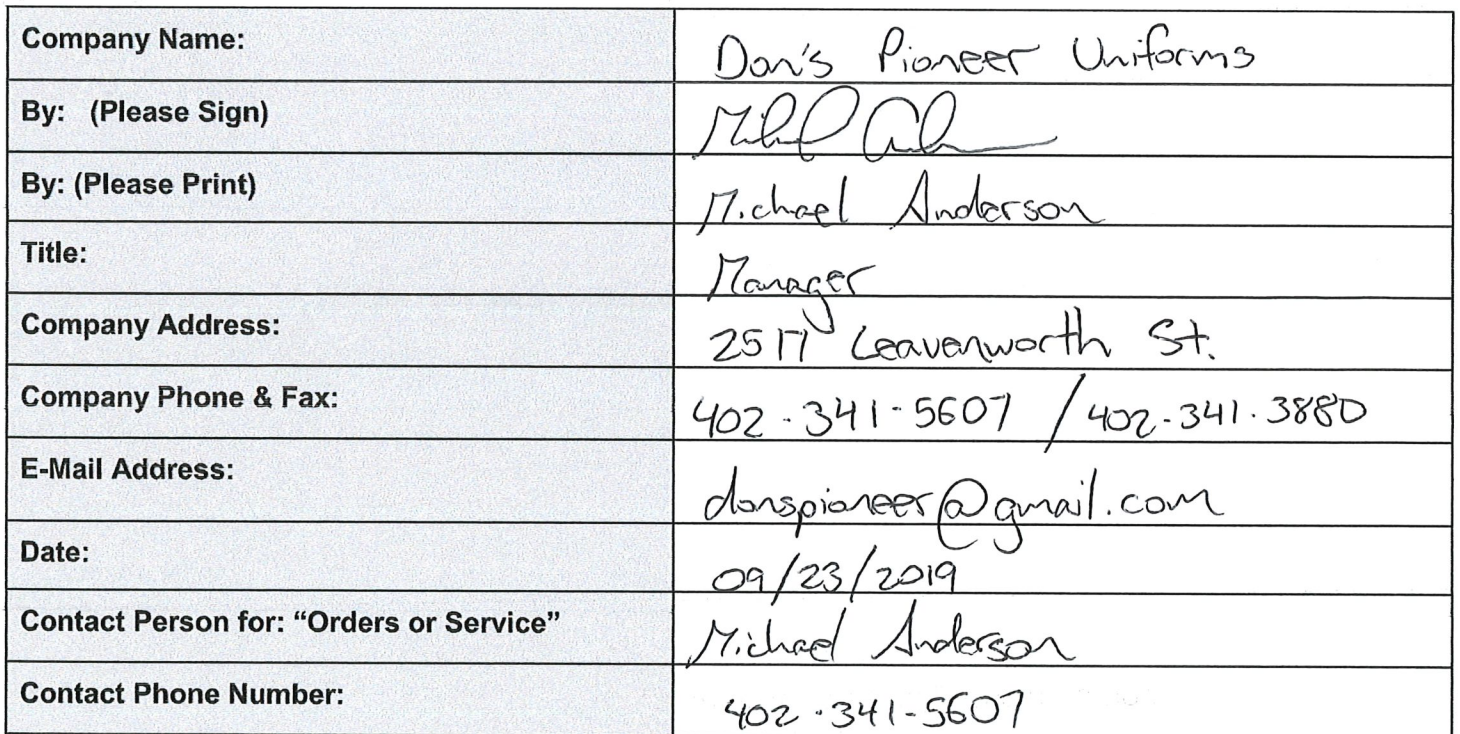 Company Name: Don's Pioneer Uniforms
By: (Please Sign)
By: (Please Print) Michael Anderson
Title: Manager
Company Address: 2517 Leavenworth St.
Company Phone & Fax: 402-341-5607 / 402-341-3880
E-Mail Address: donspioneer@gmail.com
Date: 09/23/2019
Contact Person for: “Orders or Service” Michael Anderson
Contact Phone Number: 402-341-5607